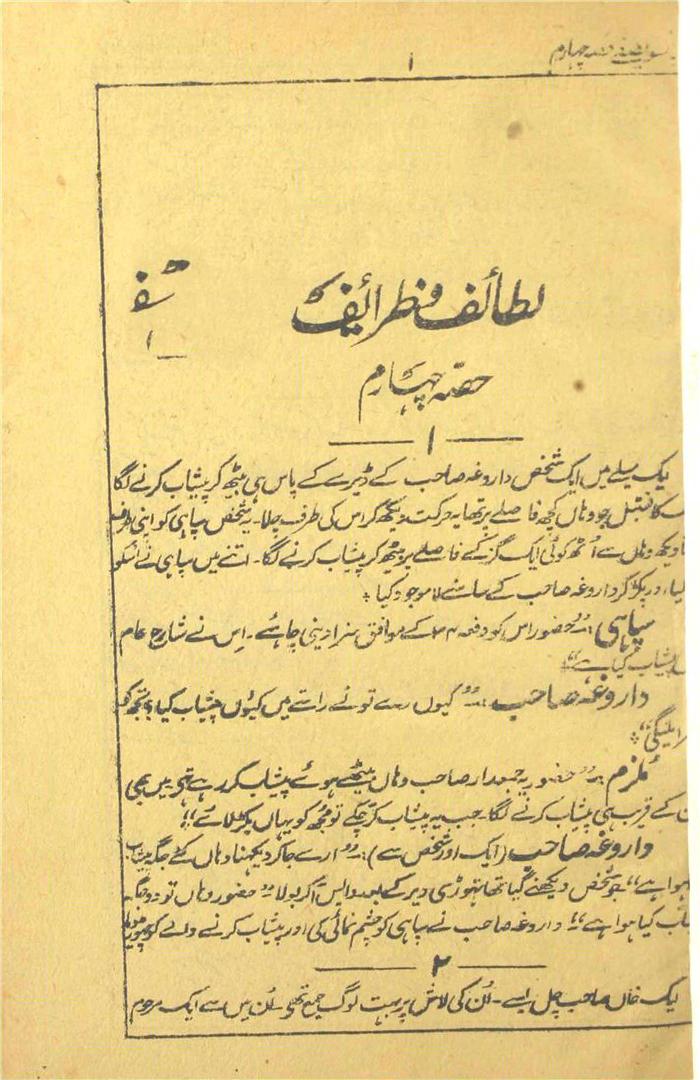 ۱
حصہ چہارم
لطائف و ظرائف
حصّہ چہارم
۱
یک میلے میں ایک شخص داروغہ صاحب کے ڈیرے کے پاس ہی بیٹھ کر پیشاب کرنے لگا
کانسٹبل جو وہاں کچھ فاصلے پر تھا یہ حرکت دیکھ کر اس کی طرف چلا۔ یہ شخص سپاہی کو اپنی طرف
دیکھ وہاں سے اُٹھ کوئی ایک گز کے فاصلے پر بیٹھ کر پیشاب کرنے لگا۔ اتنے میں سپاہی نے اسکو
لیا، در پکڑ کر داروغہ صاحب کے سامنے لا موجود کیا ٭
سپاہی :۔ "حضور اس کو دفعہ ۳۴ کے موافق سزا دینی چاہئے۔ اِس نے شارع عام
پیشاب کیا ہے"
داروغہ صاحب :۔ "کیوں بے تو نے راستے میں کیوں پیشاب کیا؟ تجھ کو
ملیگی" ٭
مُلزم :۔ "حضور یہ جمعدار صاحب وہاں بیٹھے ہوئے پیشاب کر رہے تھے میں بھی
ن کے قریب ہی پیشاب کرنے لگا۔ جب یہ پیشاب کر چکے تو مجھ کو یہاں پکڑ لائے"
داروغہ صاحب (ایک اور شخص سے) :۔ "ارے جا کر دیکھنا وہاں کئے جگہ پیشاب
ہوا ہے" جو شخص دیکھنے گیا تھا تھوڑی دیر کے بعد واپس آکر بولا "حضور وہاں تو دو جگہ
شاب کیا ہوا ہے" داروغہ صاحب نے سپاہی کو چشم نمائی کی اور پیشاب کرنے والے کو چھوڑ دیا
۲
یک خاں صاحب چل بسے۔ اُن کی لاش پر بہت لوگ جمع تھے۔ اُن میں سے ایک مرحوم